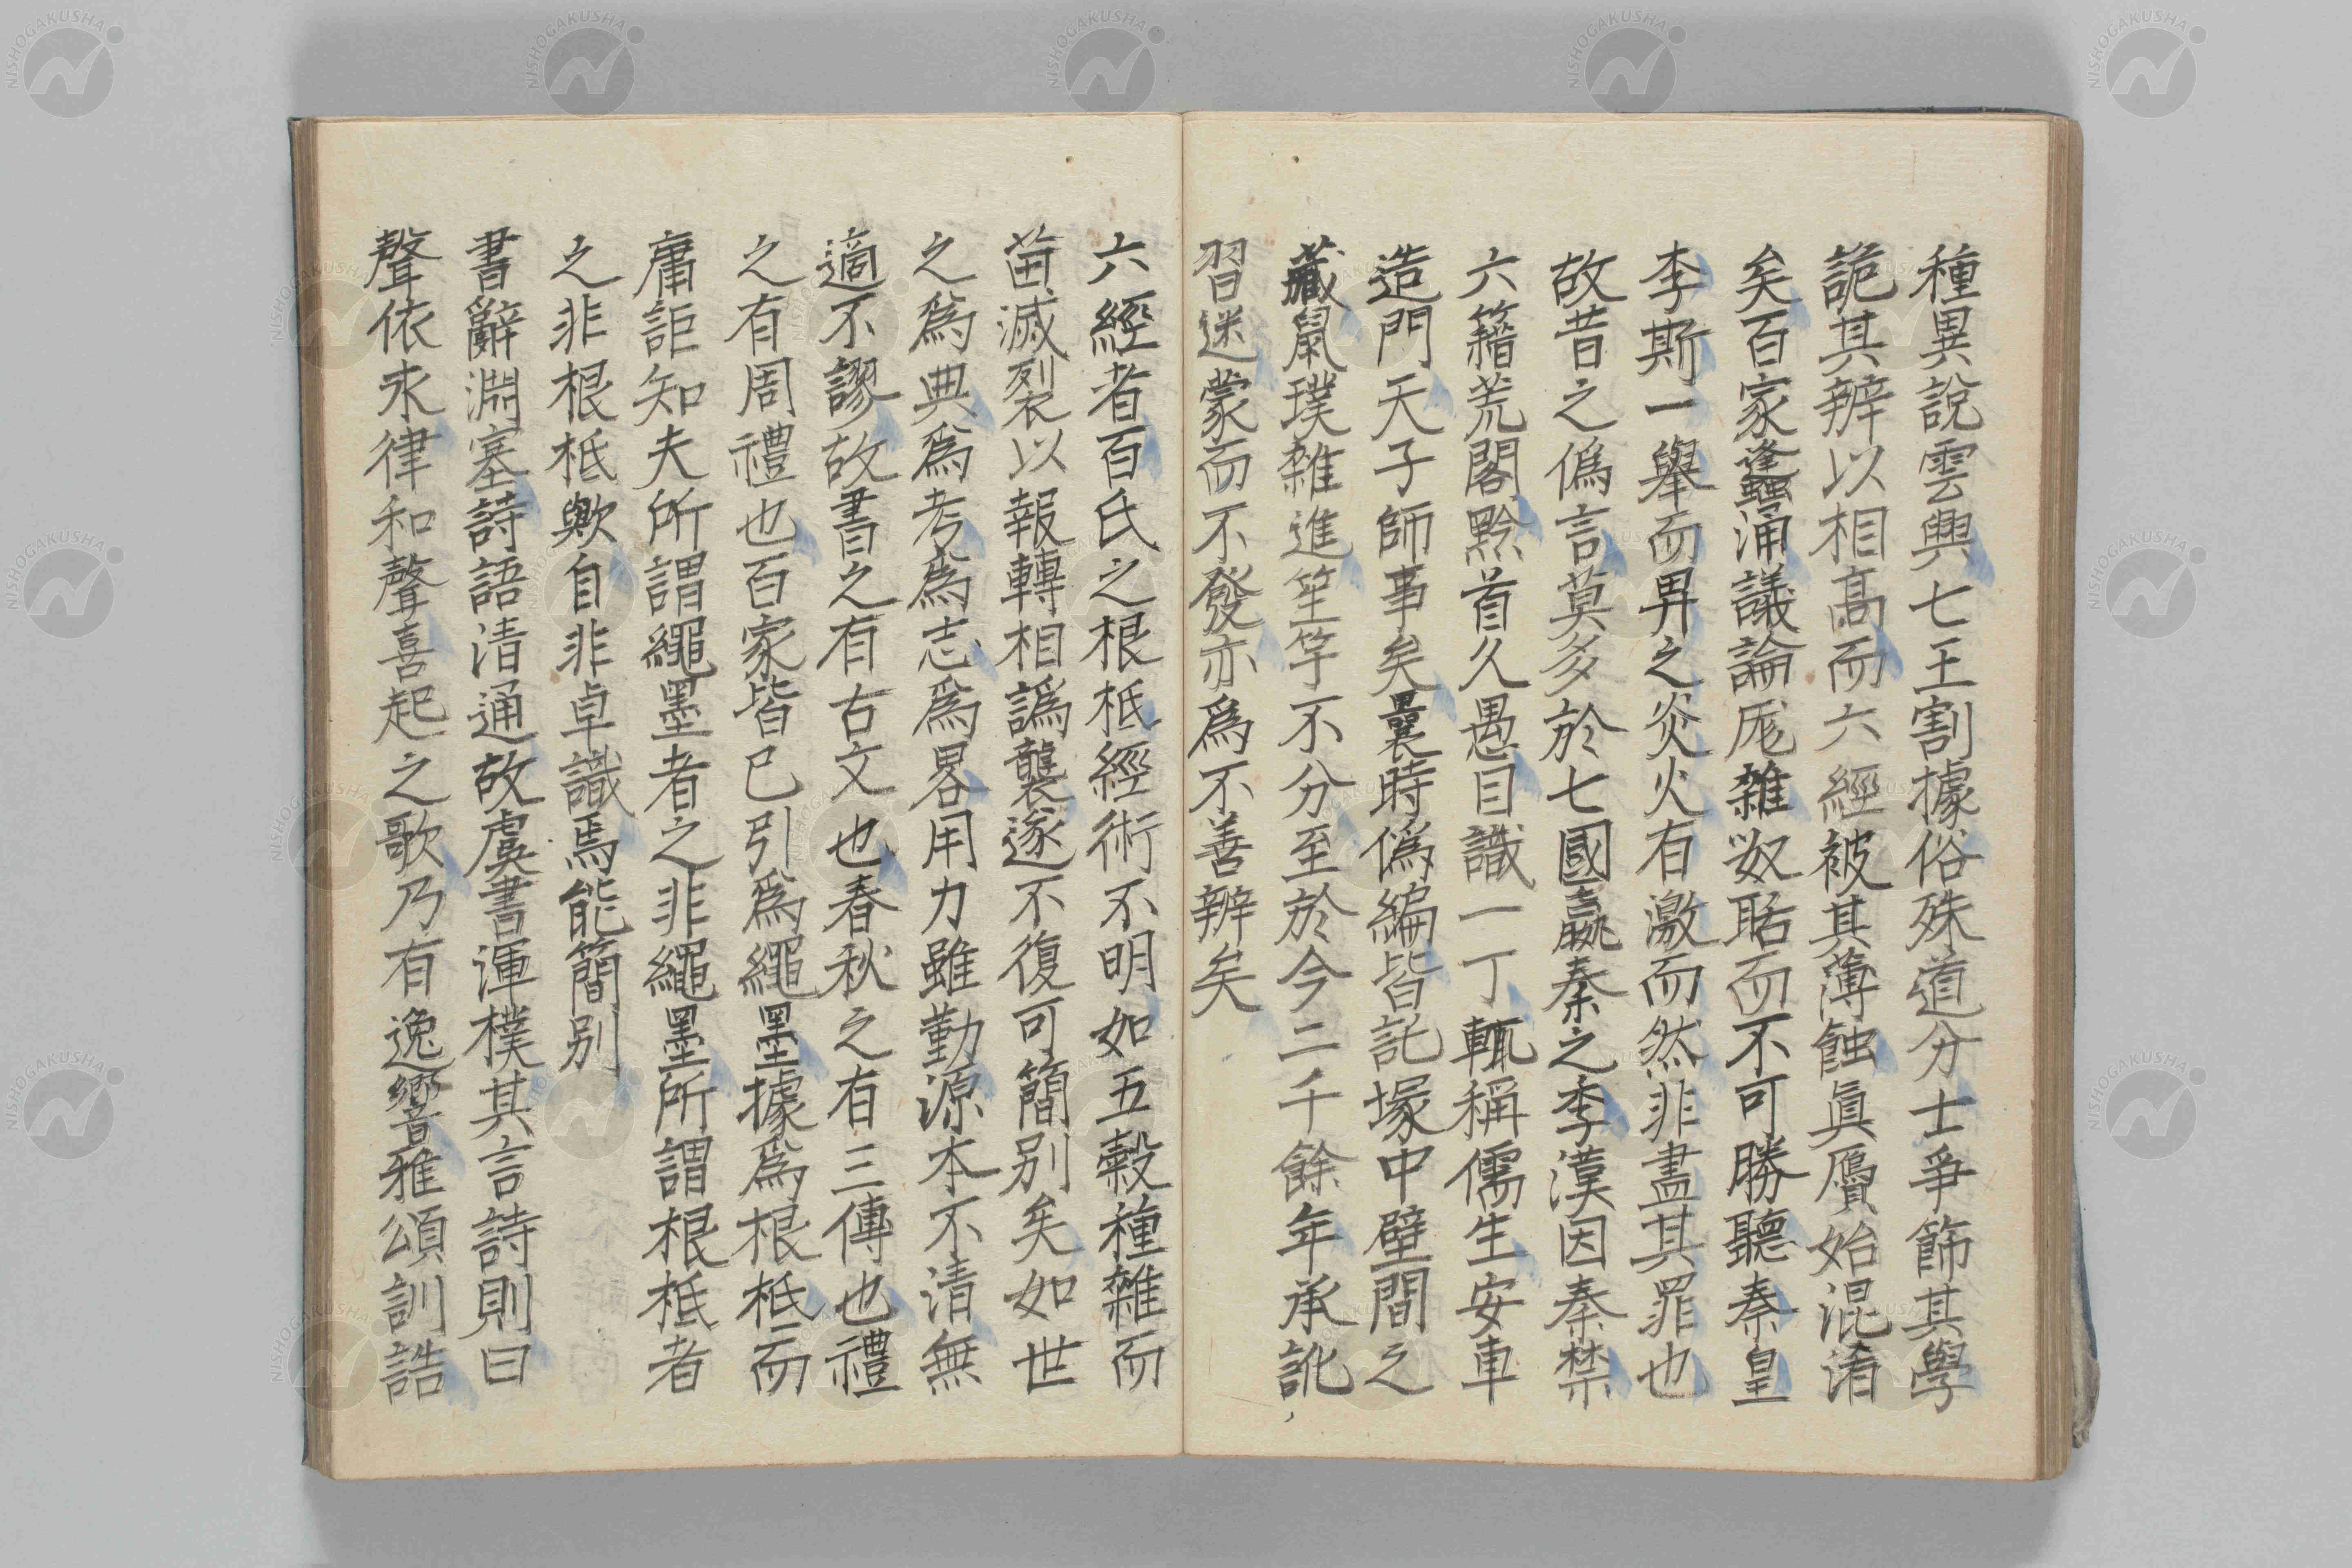 種異說雲興七王割據俗殊道分士爭飾其學
詭其辨以相高而六經被其薄蝕眞贋始混淆
矣百家蠭涌議論厖雜呶聒而不可勝聽秦皇
李斯一擧而畀之炎火有激而然非盡其罪也
故昔之僞言莫多於七國嬴秦之季漢因秦禁
六籍荒閣黔首久愚目識一丁輒稱儒生安車
造門天子師事矣曩時僞編皆託塚中壁間之
藏鼠璞雜進笙竽不分至於今二千餘年承訛
習迷蒙而不發亦爲不善辨矣
六經者百氏之根柢經術不明如五穀種雜而
菑滅裂以報轉相譌襲遂不復可簡別矣如世
之爲典爲考爲志爲畧用力雖勤源本不清無
適不謬故書之有古文也春秋之有三傳也禮
之有周禮也百家皆已引爲繩墨據爲根柢而
庸詎知夫所謂繩墨者之非繩墨所謂根柢者
之非根柢歟自非卓識焉能簡別
書辭淵塞詩語清通故虞書渾樸其言詩則曰
聲依永律和聲喜起之歌乃有逸響雅頌訓誥
NISHOGAKUSHA